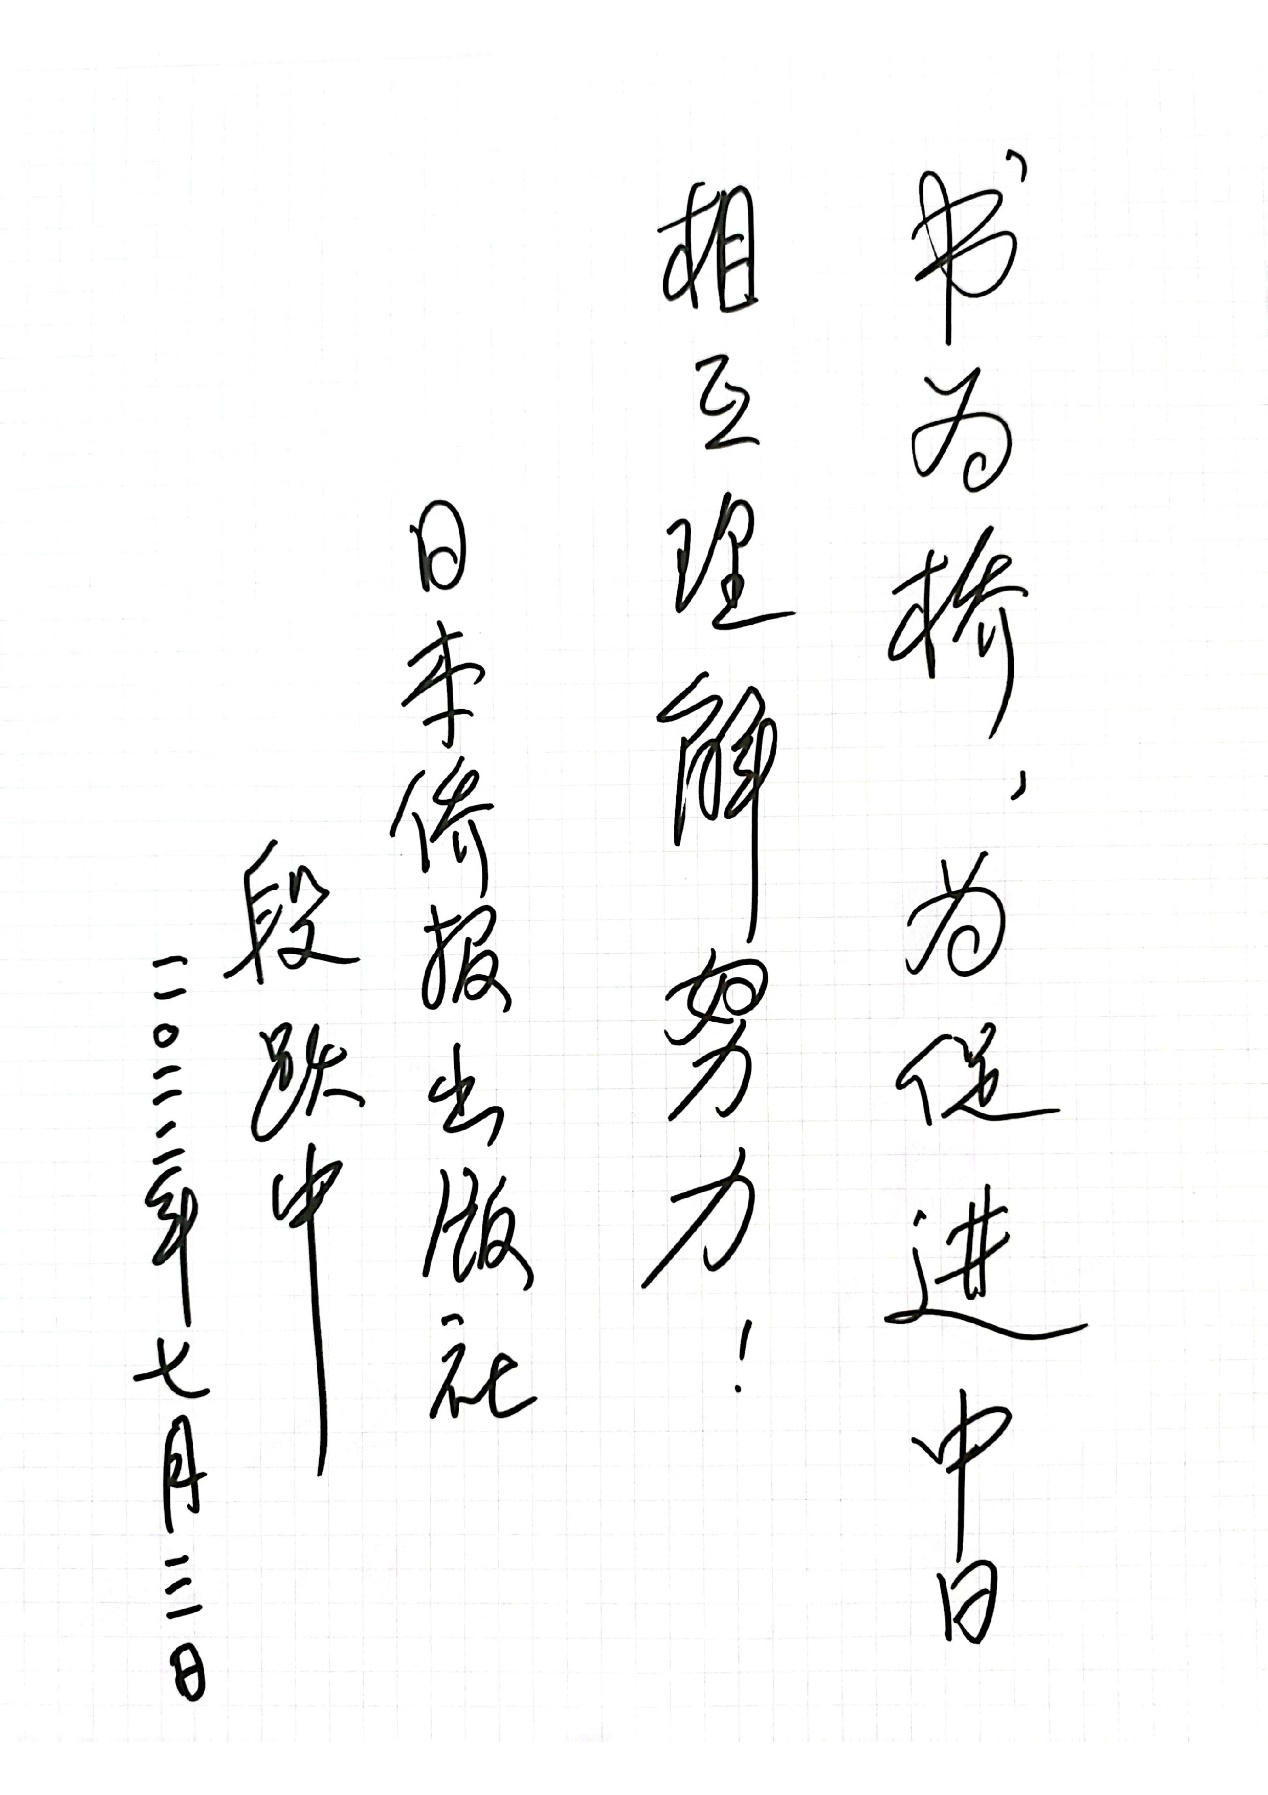 书为桥，为促进中日
相互理解努力！
日本侨报出版社
段跃中
二〇二二年七月三日